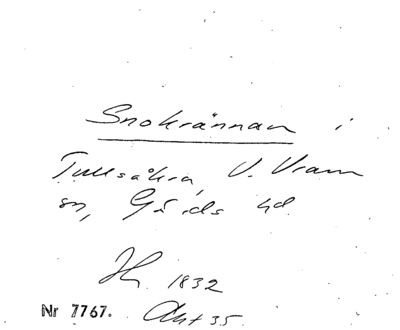 Snokrännan i
Tullsåkra, V. Vram
sn, Gärds hd.
1832
Nr 7767. Akt 35